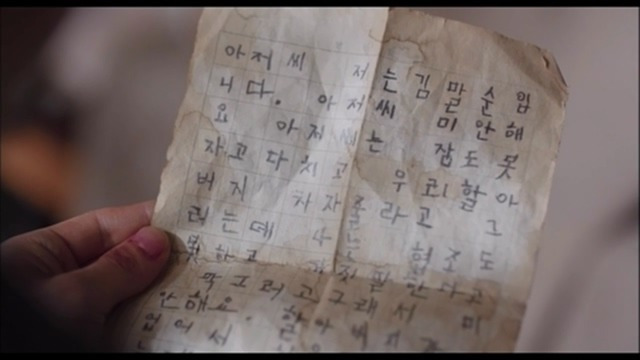 아저씨 저는 김말순입
니다. 아저씨 미안해
요 아저씨는 잠도 못
자고 다치고 우리 할아
버지 차자줄라고 그
러는데 나는 협조도
못하고
막 그러고 그래서 미
안해요. 할아버지
없어서